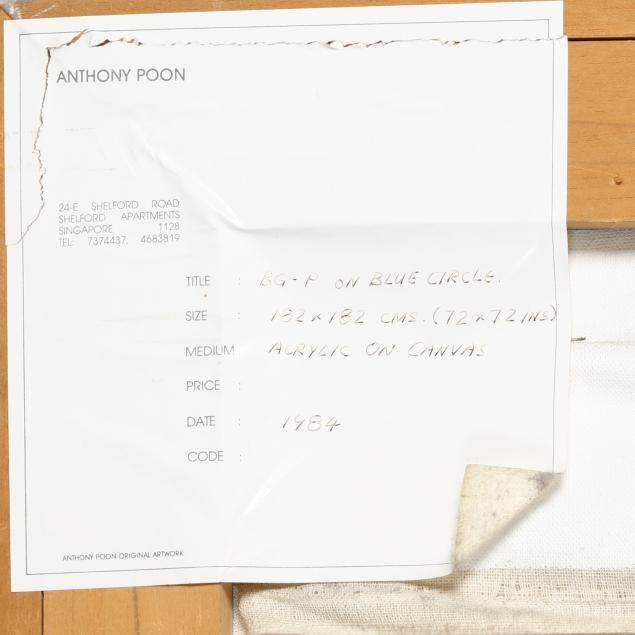 ANTHONY POON
24-E SHELFORD ROAD
SHELFORD APARTMENTS
SINGAPORE 1128
TEL: 7374437, 4683819
TITLE : BG-P ON BLUE CIRCLE.
SIZE : 182 x 182 CMS. (72 x 72 INS)
MEDIUM : ACRYLIC ON CANVAS
PRICE :
DATE : 1984
CODE :
ANTHONY POON ORIGINAL ARTWORK